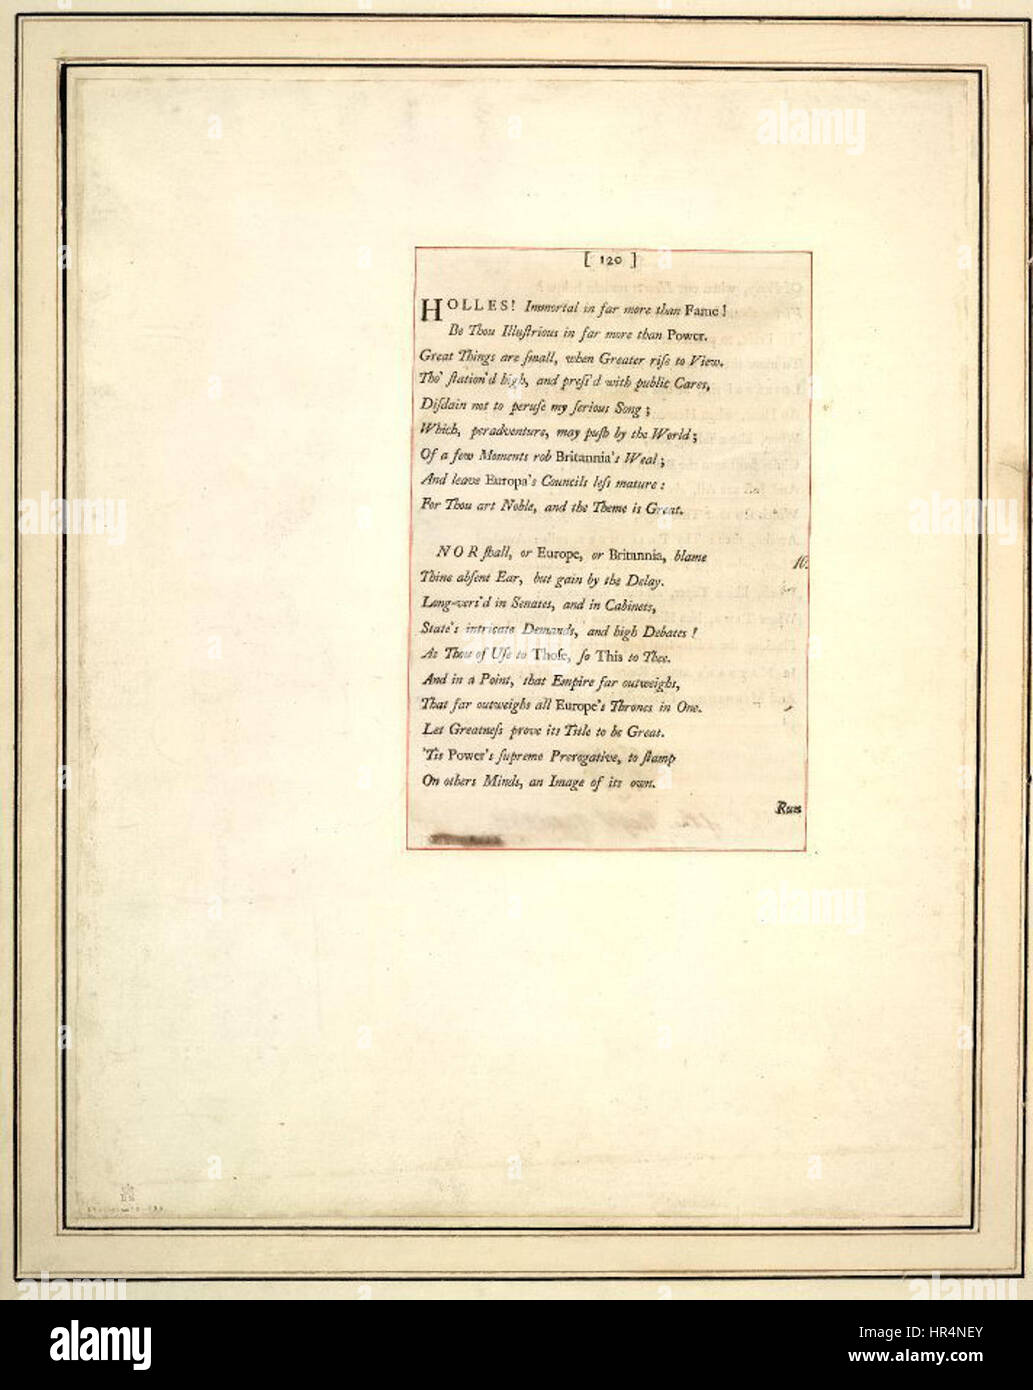 [ 120 ]
HOLLES! Immortal in far more than Fame!
Be Thou Illuſtrious in far more than Power.
Great Things are ſmall, when Greater riſe to View.
Tho' ſtation'd high, and preſs'd with public Cares,
Diſdain not to peruſe my ſerious Song;
Which, peradventure, may puſh by the World;
Of a few Moments rob Britannia's Weal;
And leave Europa's Councils leſs mature:
For Thou art Noble, and the Theme is Great.
NOR ſhall, or Europe, or Britannia, blame
Thine abſent Ear, but gain by the Delay.
Long-vers'd in Senates, and in Cabinets,
State's intricate Demands, and high Debates!
As Thou of Uſe to Thoſe, ſo This to Thee.
And in a Point, that Empire far outweighs,
That far outweighs all Europe's Thrones in One.
Let Greatneſs prove its Title to be Great.
'Tis Power's ſupreme Prerogative, to ſtamp
On others Minds, an Image of its own.
Run
alamy
Image ID: HR4NEY
www.alamy.com